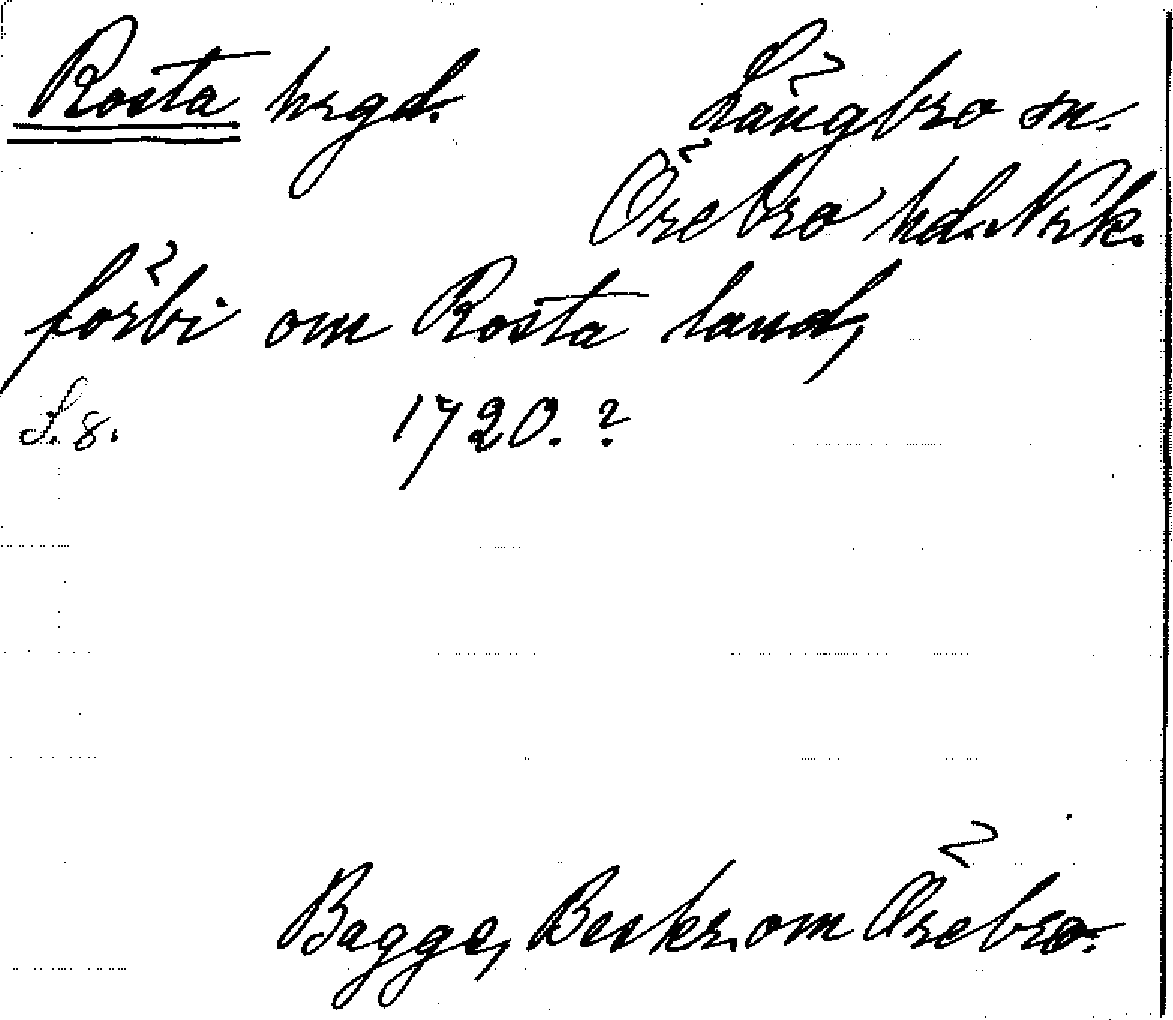 Rosta hrgd. Längbro sn.
Örebro hd. Nrk.
förbi om Rosta land,
S. 8. 1720. ?
Bagge, Beskr. om Örebro.